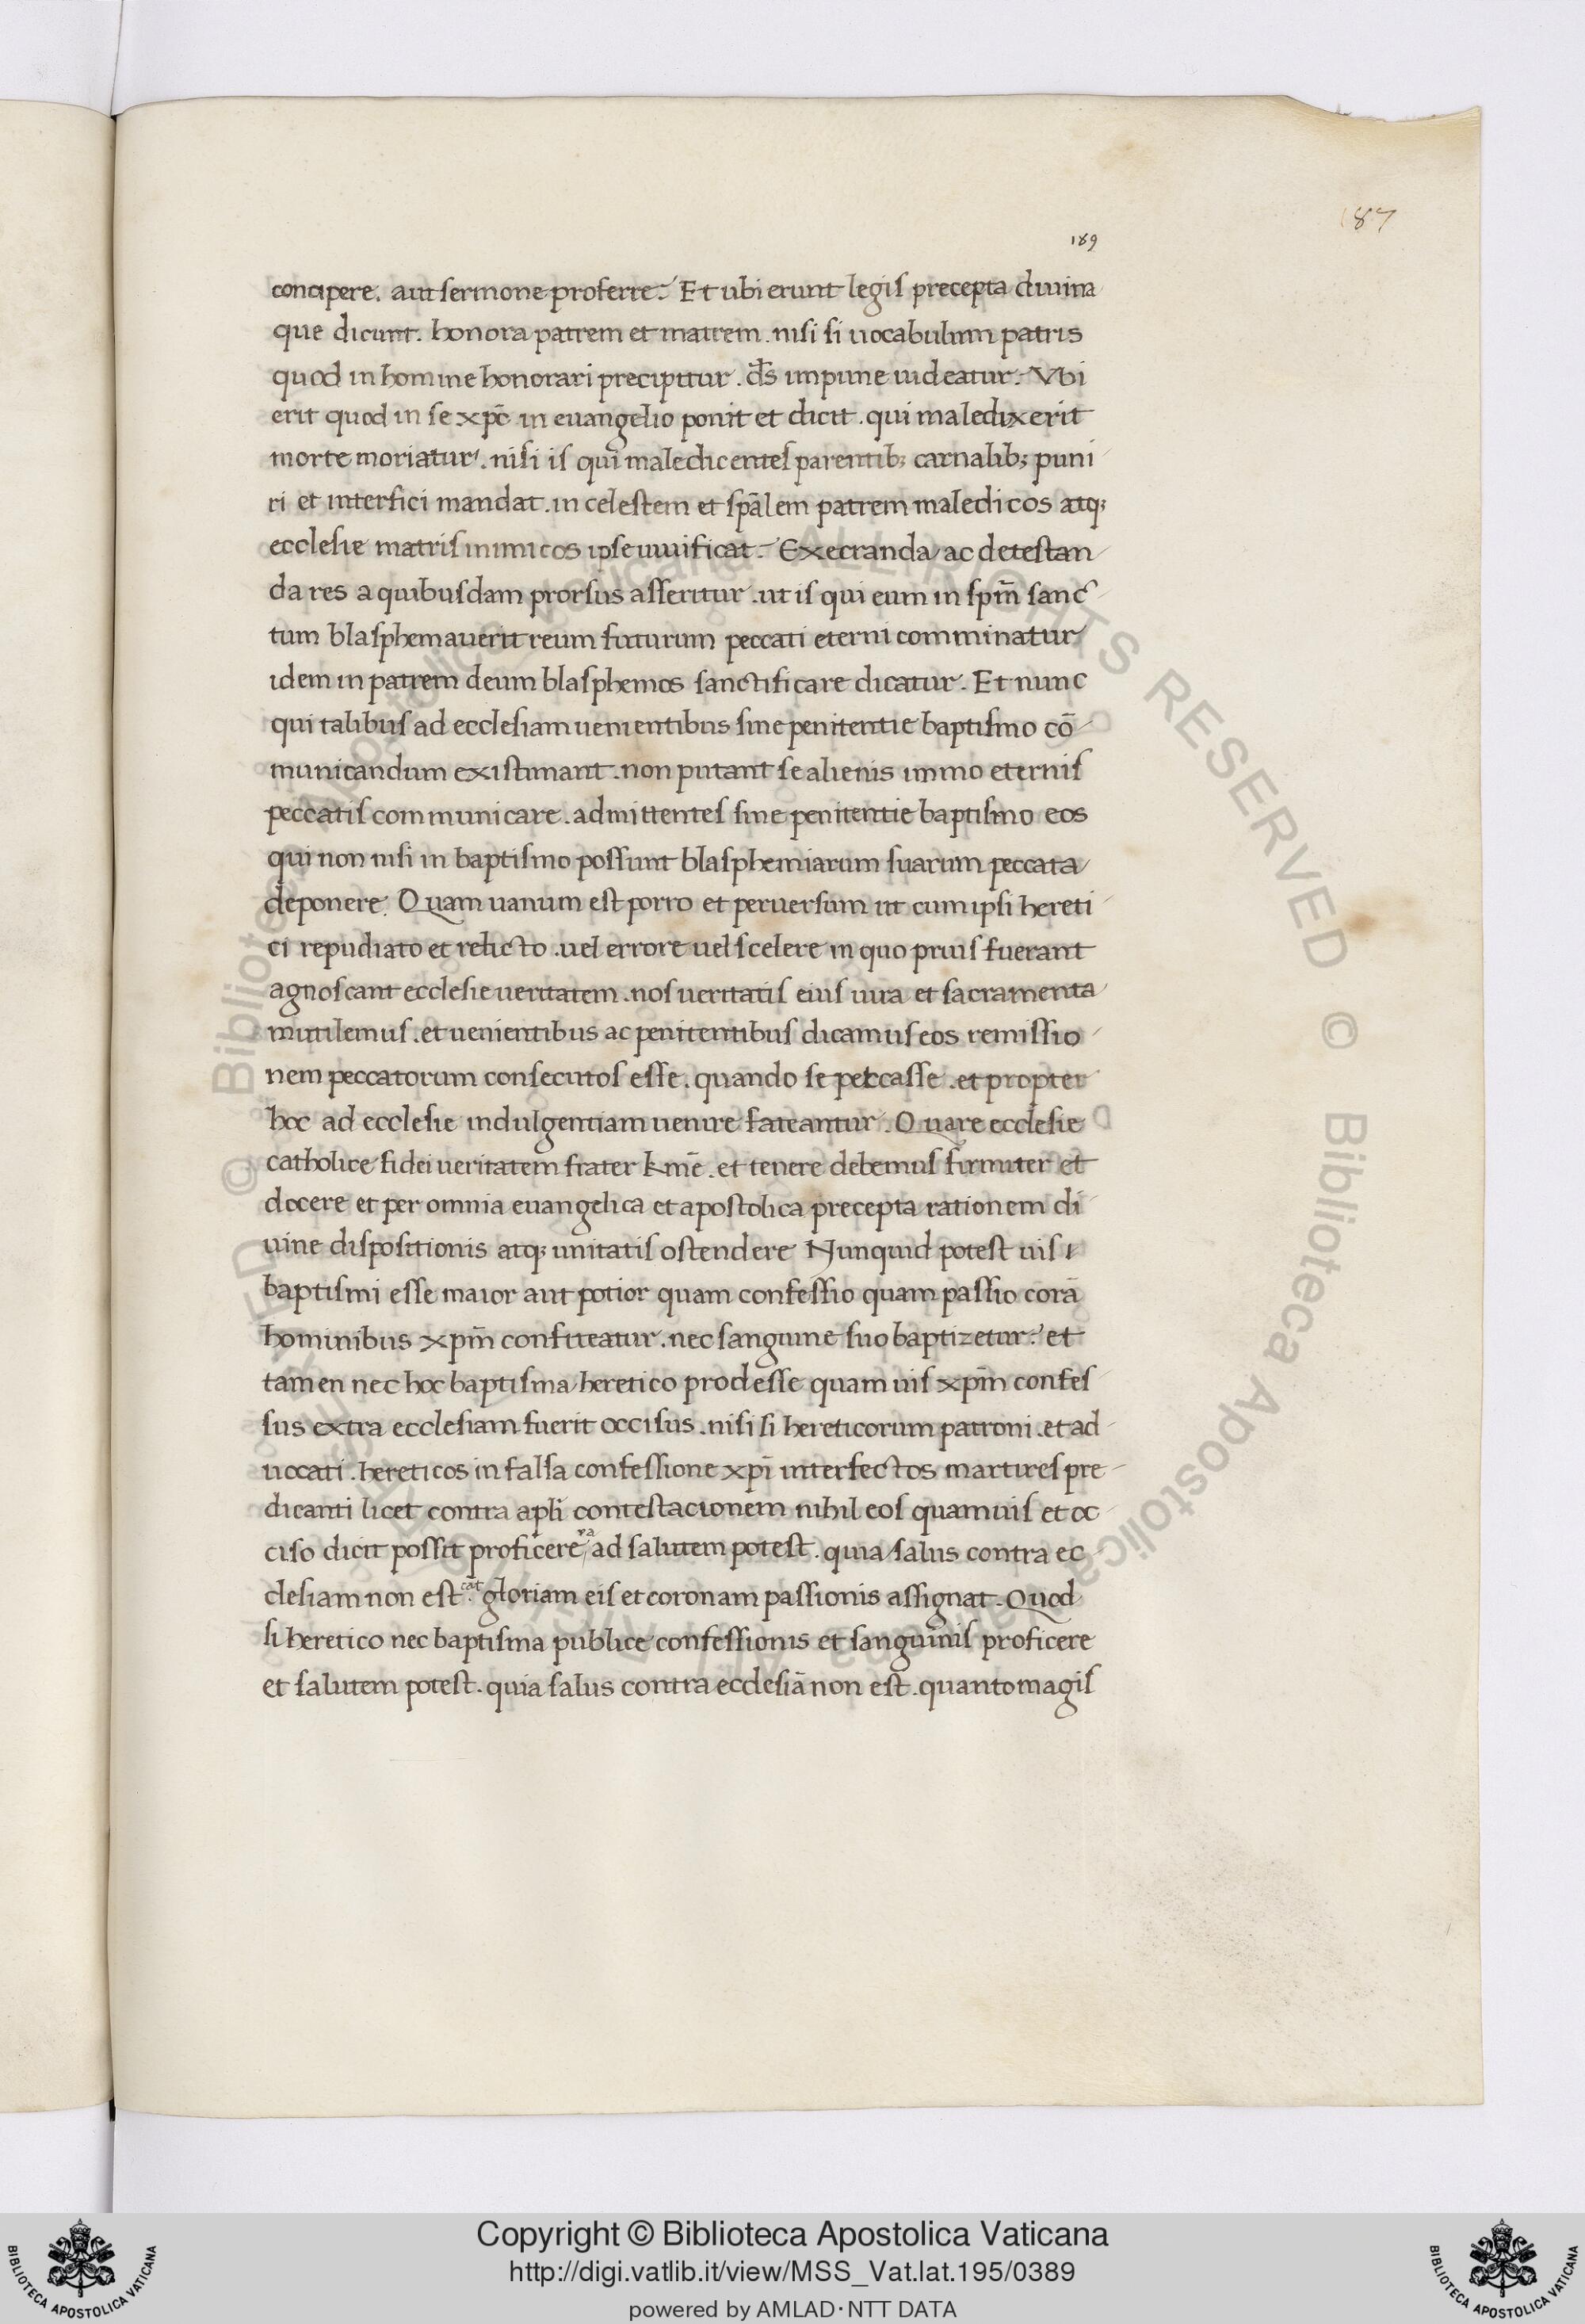 187
189
concipere. aut sermone proferre. Et ubi erunt legis precepta diuina
que dicunt. honora patrem et matrem. nisi si uocabulum patris
quod in homine honorari precipitur. ds̄ impune uideatur. Vbi
erit quod in se xpc̄ in euangelio ponit et dicit. qui maledixerit
morte moriatur. nisi is qui maledicentes parentib; carnalib; puni
ri et interfici mandat. in celestem et spālem patrem maledicos atq;
ecclesie matris inimicos ipse uiuificat. Execranda ac detestan
da res a quibusdam prorsus asseritur. ut is qui eum in spm̄ sanc
tum blasphemauerit reum futurum peccati eterni comminatur
idem in patrem deum blasphemos sanctificare dicatur. Et nunc
qui talibus ad ecclesiam uenientibus sine penitentie baptismo cō
municandum existimant. non putant se alienis immo eternis
peccatis communicare. admittentes sine penitentie baptismo eos
qui non nisi in baptismo possunt blasphemiarum suarum peccata
deponere. Quam uanum est porro et peruersum ut cum ipsi hereti
ci repudiato et relicto. uel errore uel scelere in quo prius fuerant
agnoscant ecclesie ueritatem. nos ueritatis eius iura et sacramenta
mutilemus. et uenientibus ac penitentibus dicamus eos remissio
nem peccatorum consecutos esse. quando se peccasse. et propter
hoc ad ecclesie indulgentiam uenire fateantur. Quare ecclesie
catholice fidei ueritatem frater kmē. et tenere debemus firmiter et
docere et per omnia euangelica et apostolica precepta rationem di
uine dispositionis atq; unitatis ostendere Nunquid potest uis
baptismi esse maior aut potior quam confessio quam passio corā
hominibus xpm̄ confiteatur. nec sanguine suo baptizetur. et
tamen nec hoc baptisma heretico prodesse quam uis xpm̄ confes
sus extra ecclesiam fuerit occisus. nisi si hereticorum patroni. et ad
uocati. hereticos in falsa confessione xpī interfectos martires pre
dicanti licet contra apli contestacionem nihil eos quamuis et oc
ciso dicit possit proficere va ad salutem potest. quia salus contra ec
clesiam non est. cat gloriam eis et coronam passionis assignat. Quod
si heretico nec baptisma publice confessionis et sanguinis proficere
et salutem potest. quia salus contra ecclesiā non est. quanto magis
© Biblioteca Apostolica Vaticana ALL RIGHTS RESERVED © Biblioteca Apostolica Vaticana ALL RIGHTS RESERVED
Copyright © Biblioteca Apostolica Vaticana
http://digi.vatlib.it/view/MSS_Vat.lat.195/0389
powered by AMLAD·NTT DATA
BIBLIOTECA APOSTOLICA VATICANA
BIBLIOTECA APOSTOLICA VATICANA